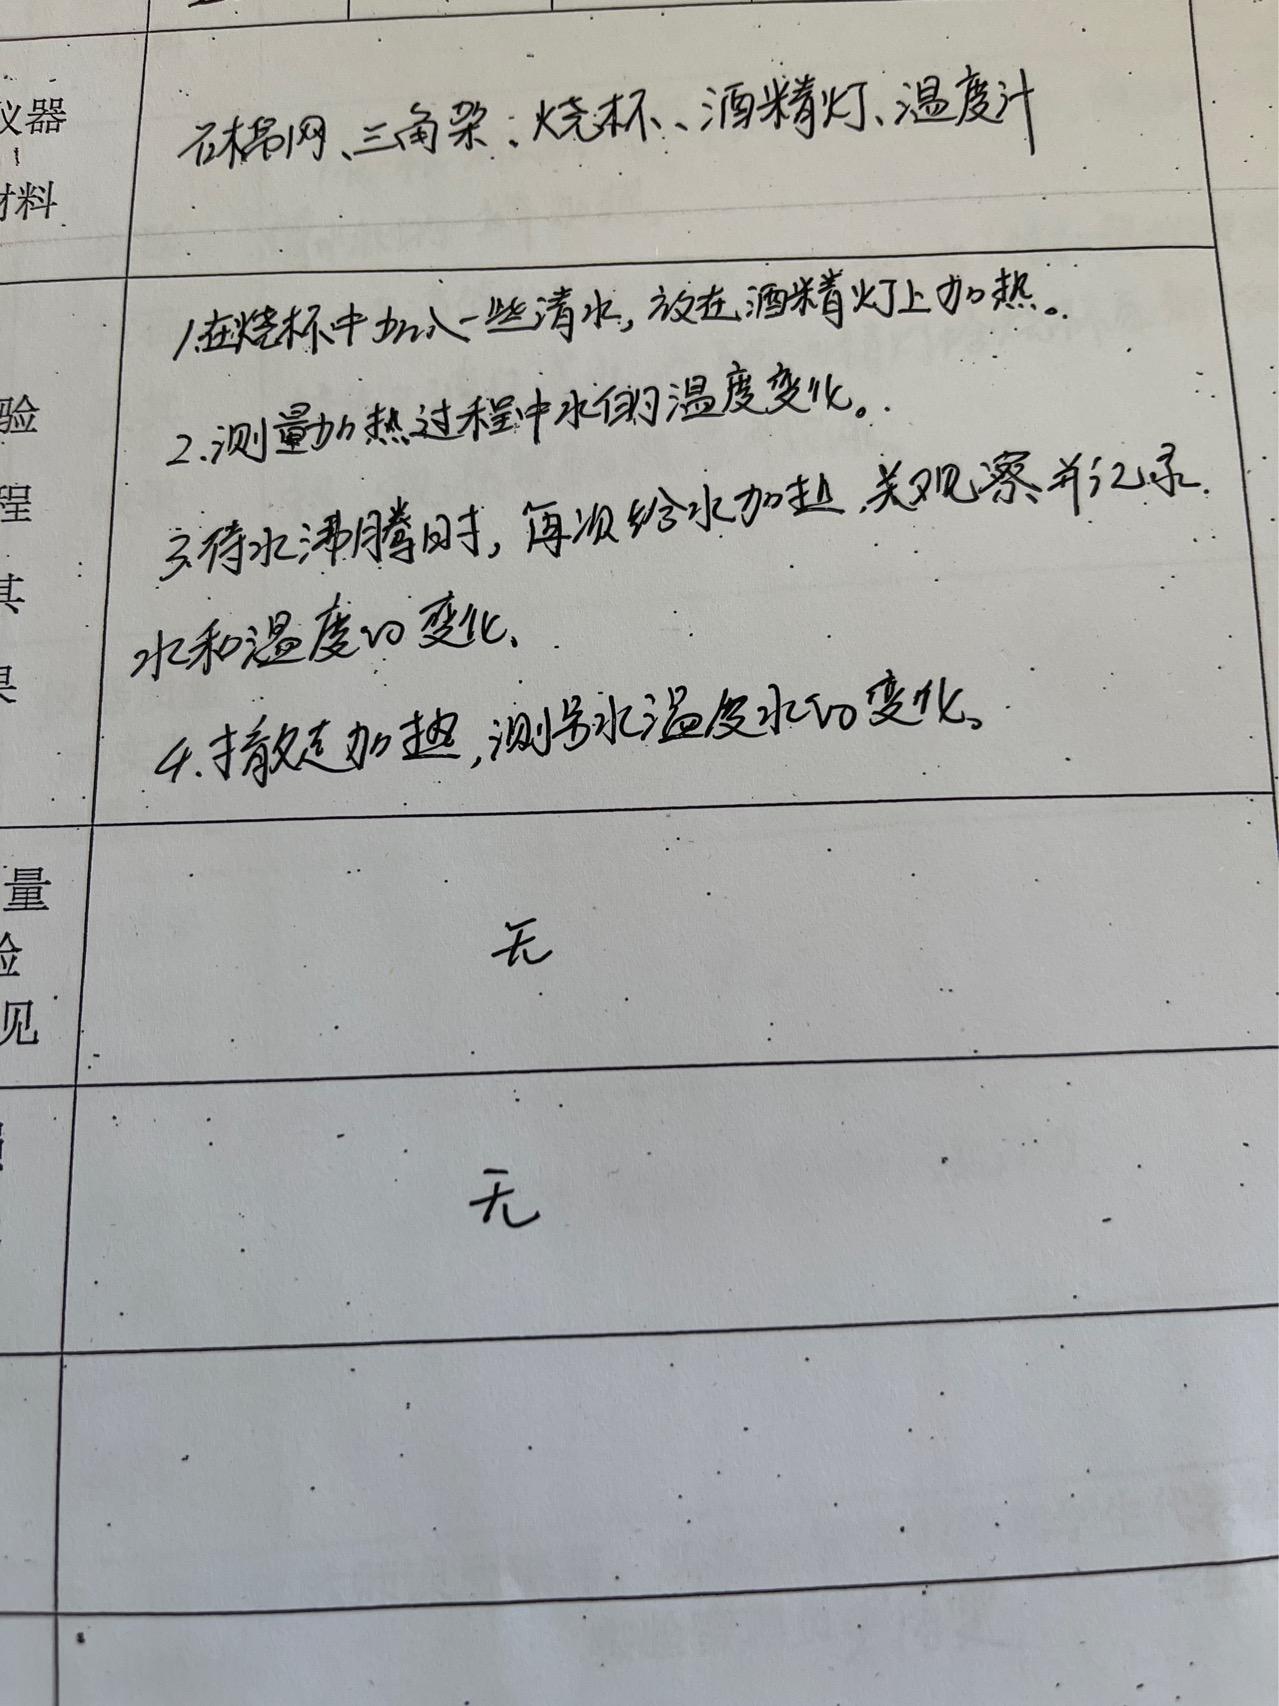 仪器
石棉网、三角架、烧杯、酒精灯、温度计
材料
1.在烧杯中加入一些清水,放在酒精灯上加热。
验
2.测量加热过程中水的温度变化。
程
3.待水沸腾时,再次给水加热,关观察并记录
其
水和温度的变化、
果
4.撤走加热,测另水温度水的变化。
量
无
验
见
无